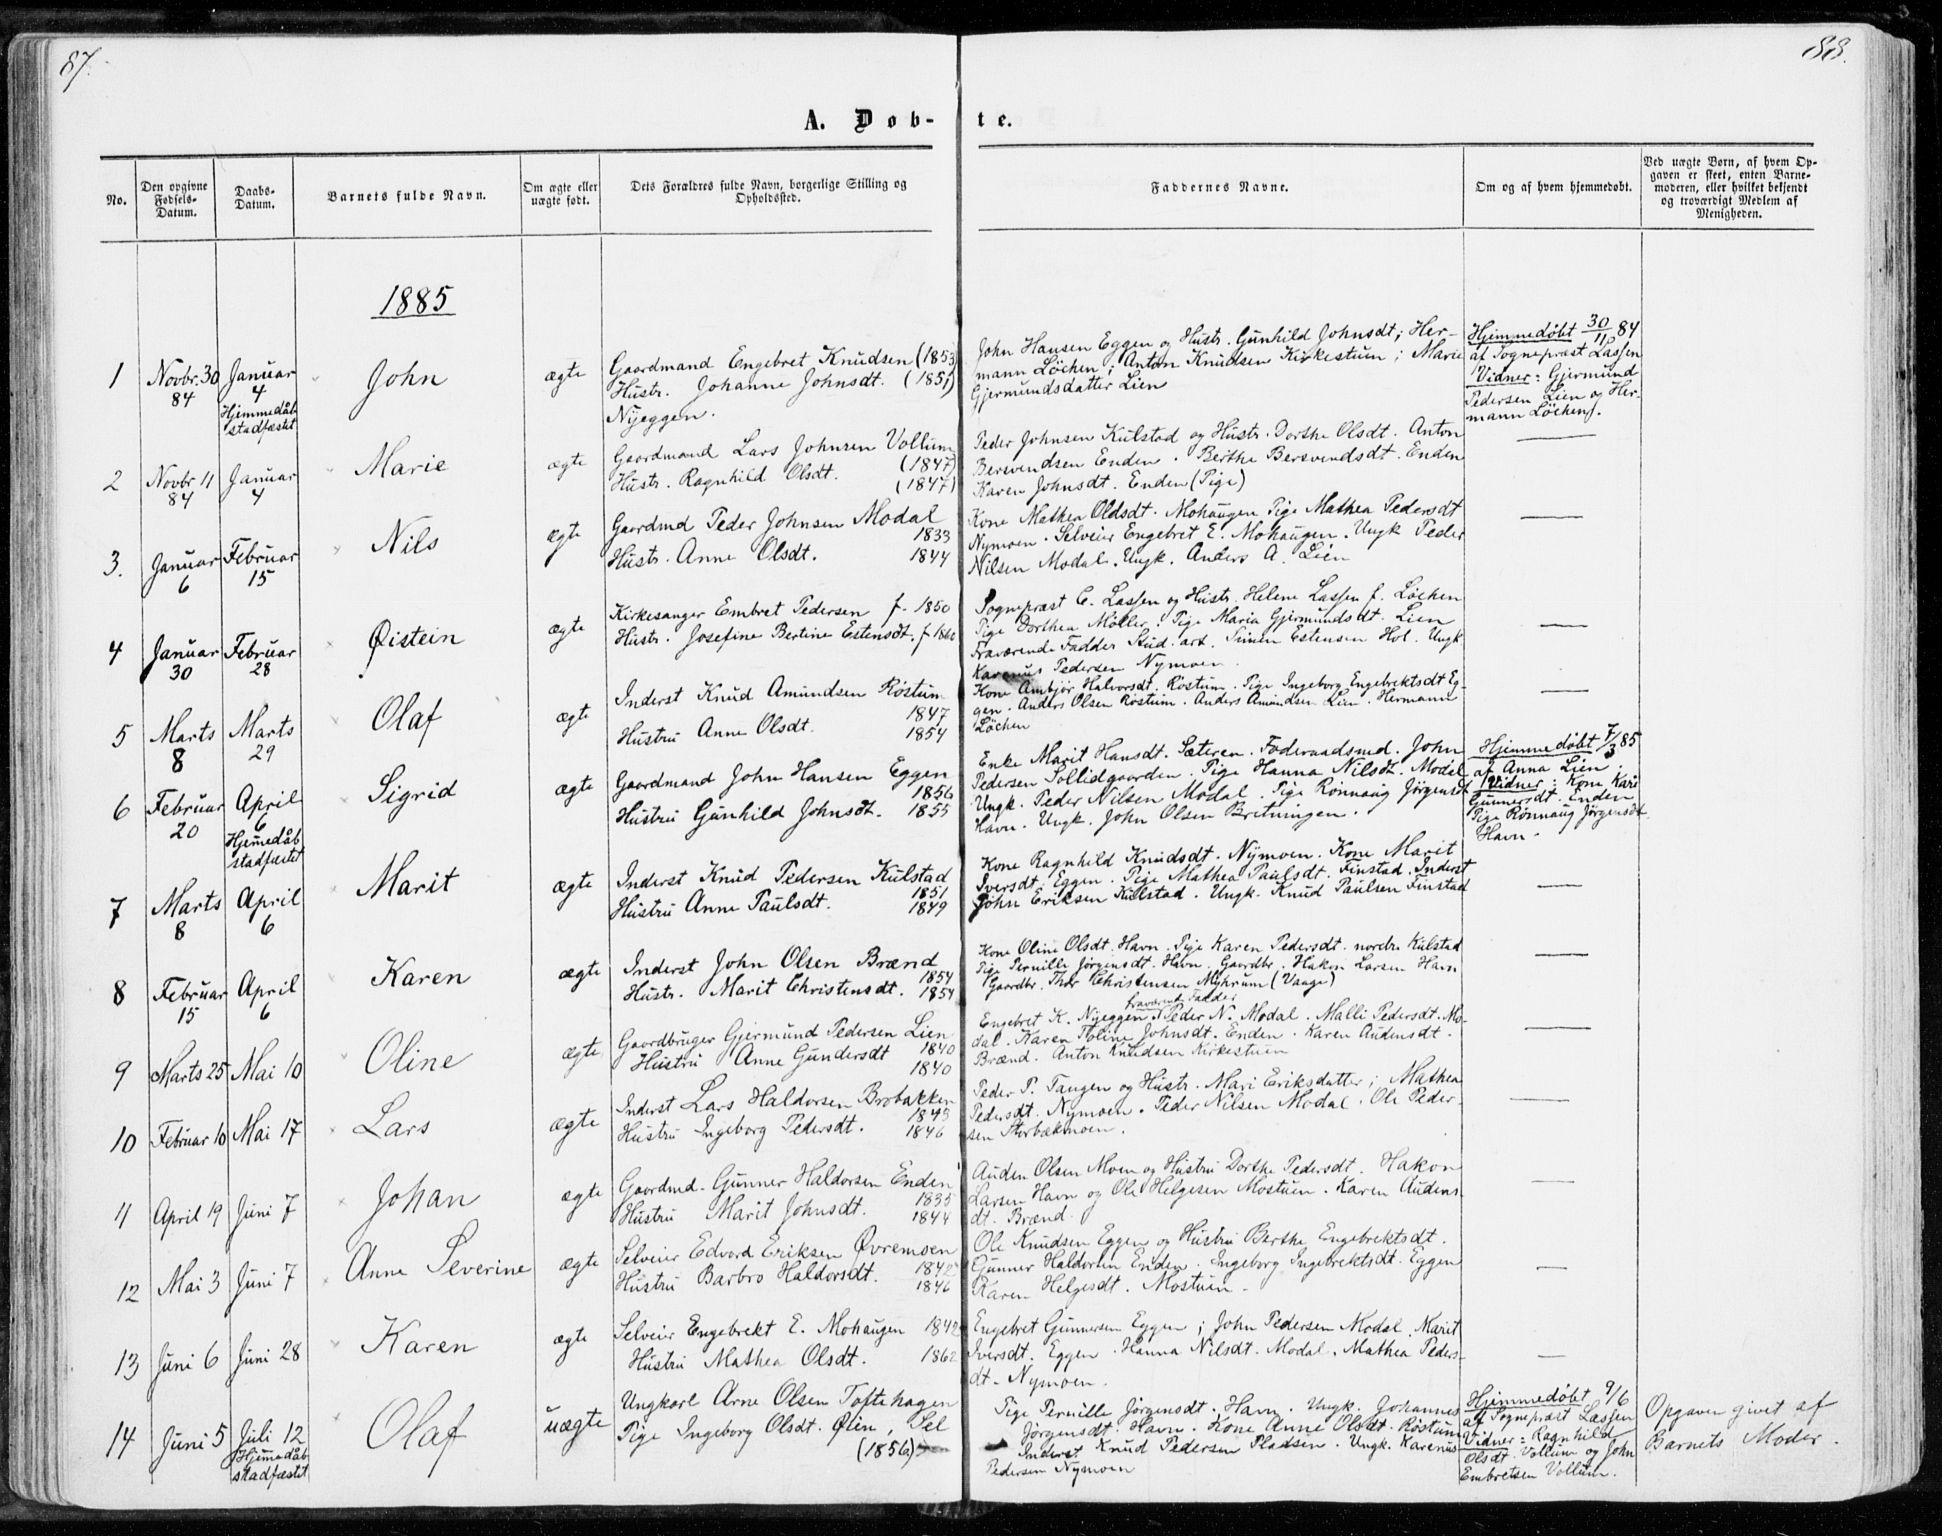 87.
88.
A. Døb-
te.
No.
Den opgivne Fødsels-Datum.
Daabs-Datum.
Barnets fulde Navn.
Om ægte eller uægte født.
Dets Forældres fulde Navn, borgerlige Stilling og Opholdssted.
Faddernes Navne.
Om og af hvem hjemmedøbt.
Ved uægte Børn, af hvem Opgaven er skeet, enten Barnemoderen, eller hvilket bekjendt og troværdigt Medlem af Menigheden.
1885
1
Novbr. 30 84
Januar 4
Hjemmedåb stadfæstet
John
ægte
Gaardmand Engebret Knudsen (1853
Hustr. Johanne Johnsdt. (1851)
Nyeggen.
John Hansen Eggen og Hustr. Gunhild Johnsdt; Her-
mann Löchen; Anton Knudsen Kirkestuen; Marie
Gjermundsdatter Lien
Hjemmedøbt 30/11 84
af Sognepræst Lassen
Vidner: Gjermund
Pedersen Lien og Her-
mann Löchen.
2
Novbr 11 84
Januar 4
Marie
ægte
Gaardmand Lars Johnsen Vollum
(1847)
Hustr. Ragnhild Olsdt. (1847)
Peder Johnsen Kulstad og Hustr. Dorthe Olsdt. Anton
Bersvendsen Enden. Berthe Bersvendsdt. Enden
Karen Johnsdt. Enden (Pige)
3.
Januar 6
Februar 15
Nils
ægte
Gaardmd Peder Johnsen Modal
1833
Hustr. Anne Olsdt. 1844
Kone Mathea Oldsdt. Mohaugen Pige Mathea Pedersdt
Nymoen. Selveier Engebret E. Mohaugen. Ungk Peder
Nilsen Modal. Ungk. Anders A. Lien
4
Januar 30
Februar 28
Øistein
ægte
Kirkesanger Embret Pedersen f. 1850
Hustr. Josefine Bertine Estensdt. f 1860
Sognepræst C. Lassen og Hustr. Helene Lassen f. Löchen
Pige Dorthea Möller; Pige Maria Gjermundsdt. Lien
Fraværende Fadder Stud. art. Simen Estensen Hol. Ungk
Karenus Pedersen Nymoen.
5
Marts 8
Marts 29
Olaf
ægte
Inderst Knud Amundsen Röstum
1847
Hustru Anne Olsdt. 1854
Kone Ambjör Halvorsdt. Röstum. Pige Ingeborg Engebrektsdt Eg-
gen. Anders Olsen Röstum. Anders Amundsen Lien. Hermann
Löchen
6
Februar 20
April 6
Hjemmedåb stadfæstet
Sigrid
ægte
Gaardmand John Hansen Eggen
1856
Hustru Gunhild Johnsdt. 1855
Enke Marit Hansdt. Sæteren. Føderaadsmd. John
Pedersen Sollidgaarden. Pige Hanna Nilsdt. Modal
Ungk. Peder Nilsen Modal. Pige Rønnaug Jörgensdt
Havn. Ungk. John Olsen Bretningen.
Hjemmedøbt 7/3 85
af Anna Lien.
Vidner: Kone Kari
Gunnersdt. Enden
Pige Rønnaug Jörgensdt
Havn.
7
Marts 8
April 6
Marit
ægte
Inderst Knud Pedersen Kulstad
1851
Hustru Anne Paulsdt. 1849
Kone Ragnhild Knudsdt. Nymoen. Kone Marit
Iversdt. Eggen. Pige Mathea Paulsdt. Finstad. Inderst
John Eriksen Kulstad. Ungk. Knud Paulsen Finstad
8
Februar 15
April 6
Karen
ægte
Inderst John Olsen Brænd
1854
Hustr. Marit Christensdt. 1854
Kone Oline Olsdt. Havn. Pige Karen Pedersdt. nordre Kulstad
Pige Pernille Jörgensdt. Havn. Gaardbr. Hakon Larsen Havn
Gaardbr. Thor Christensen Myhrum (Vaage)
9
Marts 25
Mai 10
Oline
ægte
Gaardbruger Gjermund Pedersen Lien
1840
Hustru Anne Gundersdt 1840
fraværende Fadder
Engebret K. Nyeggen. Peder N. Modal. Malli Pedersdt. Mo-
dal. Karen Toline Johnsdt. Enden. Karen Audensdt.
Brænd. Anton Knudsen Kirkestuen
10
Februar 10
Mai 17
Lars
ægte
Inderst Lars Haldorsen Brobakken
1843
Hustru Ingeborg Pedersdt. 1846
Peder P. Tangen og Hustr. Mari Eriksdatter; Mathea
Pedersdt. Nymoen. Peder Nilsen Modal. Ole Peder-
sen Storbækmoen.
11
April 19
Juni 7
Johan
ægte
Gaardmd. Gunner Haldorsen Enden
1835
Hustru Marit Johnsdt. 1844
Auden Olsen Moen og Hustru Dorthe Pedersdt. Hakon
Larsen Havn og Ole Helgesen Mostuen. Karen Audens-
dt. Brænd.
12
Mai 3
Juni 7
Anne Severine
ægte
Selveier Edvard Eriksen Øvremoen
1842
Hustru Barbro Haldorsdt. 1846
Ole Knudsen Eggen og Hustru Berthe Engebrektsdt.
Gunner Haldorsen Enden. Ingeborg Ingebrektsdt. Eggen
Karen Helgesdt. Mostuen.
13
Juni 6
Juni 28
Karen
ægte
Selveier Engebrekt E. Mohaugen 1842
Hustru Mathea Olsdt. 1862
Engebret Gunnersen Eggen; John Pedersen Modal. Marit
Iversdt. Eggen. Hanna Nilsdt. Modal. Mathea Peders-
dt. Nymoen.
14
Juni 5
Juli 12
Hjemmedåb stadfæstet
Olaf
uægte
Ungkarl Arne Olsen Toftehagen
Pige Ingeborg Olsdt. Øien, Sel
(1856)
Pige Pernille Jörgensdt. Havn. Ungk. Johannes
Jörgensdt. Havn. Kone Anne Olsdt. Röstum
Inderst Knud Pedersen Pladsen. Ungk. Karenus
Pedersen Nymoen
Hjemmedöbt 9/6
af Sognepræst Lassen
Vidner: Ragnhild
Olsdt. Vollum og John
Embretsen Vollum.
Opgaven givet af
Barnets Moder.